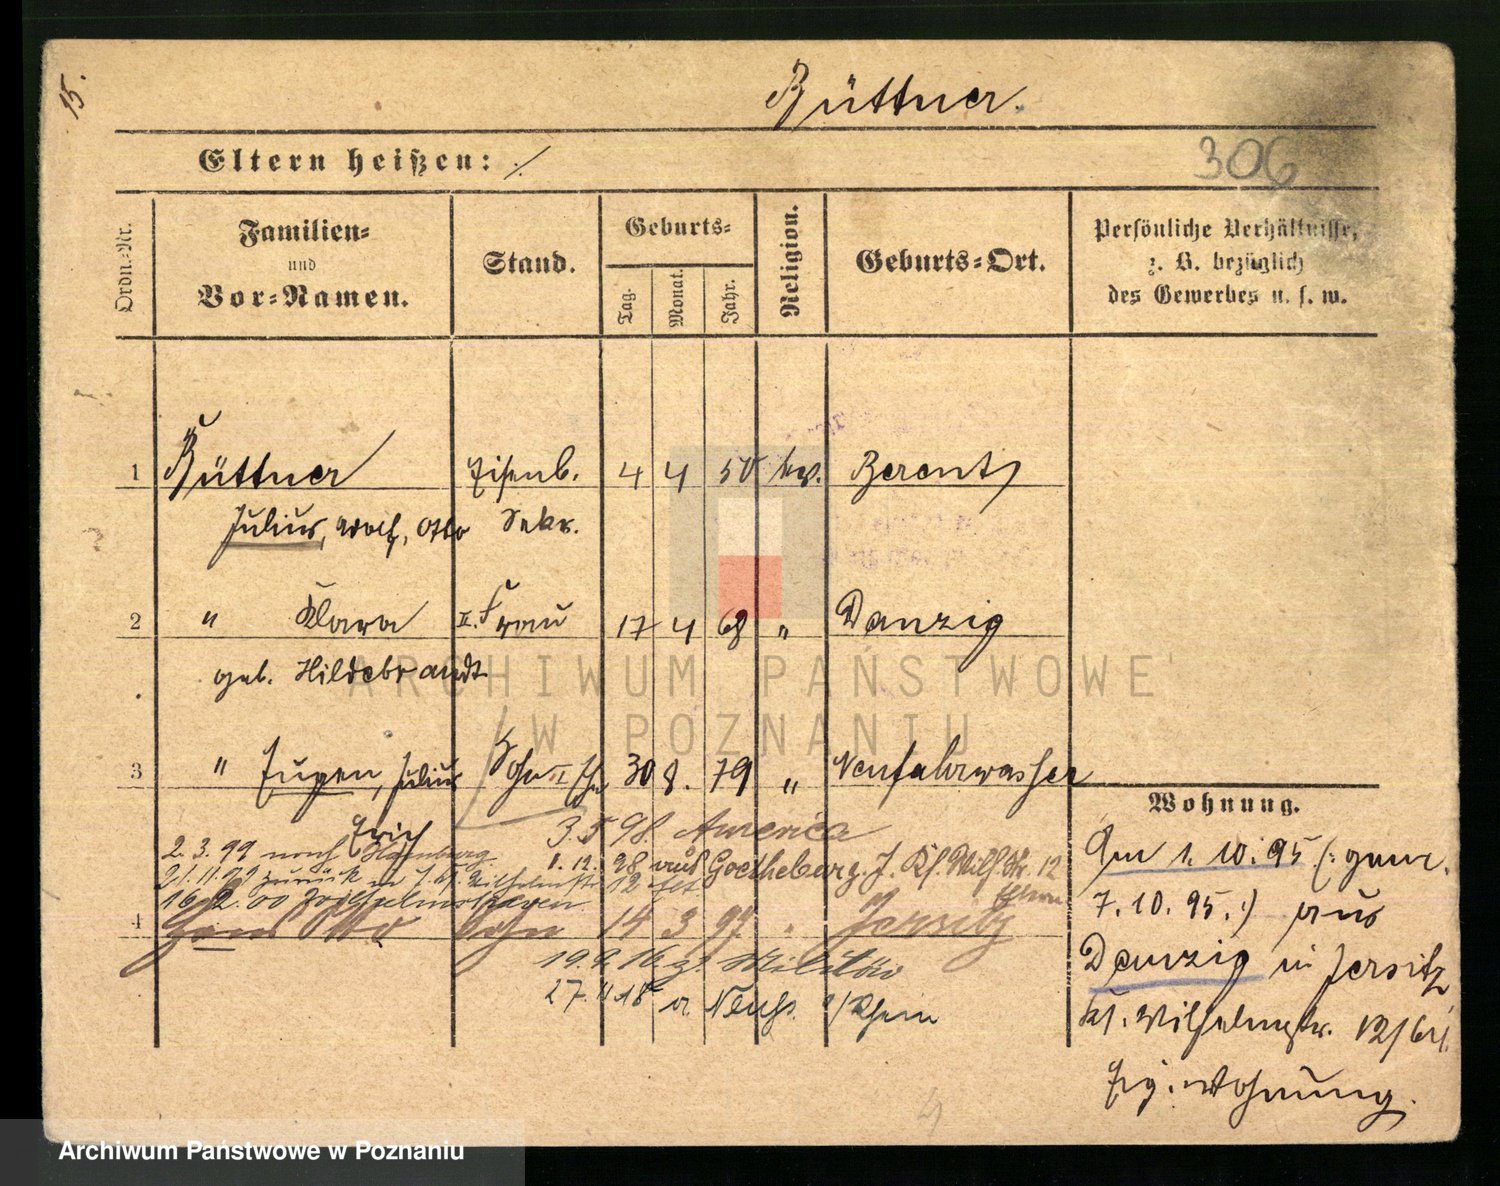 15.
Büttner.
306
Eltern heißen: ./.
Ordn.-Nr.
Familien-
und
Vor-Namen.
Stand.
Geburts-
Tag.
Monat.
Jahr.
Religion.
Geburts-Ort.
Persönliche Verhältnisse,
z. B. bezüglich
des Gewerbes u. s. w.
1 Büttner Eisenb. 4 4 50 ev. Berent
Julius, Adolf, Otto Sekr.
2 " Klara II. Frau 17 4 68 " Danzig
geb. Hildebrandt
3 " Eugen, Julius Sohn I Ehe 30 8. 79 " Neufahrwasser
Erich
3. 5 98. America
2. 3. 99 nach Hamburg
1. 12. 98 aus Goetheburg. J. Kl. Wilh. Str. 12
21. 11. 99 zurück in J. kl. Wilhelmstr 12
Eltern
16. 2. 00 Wilhelmshaven.
4 Hans Otto Sohn 14 3 97 " Jersitz
19. 9. 16 z. Militär
27. 4 18 a Neuss. a/Rhein
Wohnung.
Am 1. 10. 95 (: gem.
7. 10. 95. :) aus
Danzig in Jersitz
kl. Wilhelmstr. 12/6
Eig. Wohnung.
4
ARCHIWUM PAŃSTWOWE
W POZNANIU
Archiwum Państwowe w Poznaniu